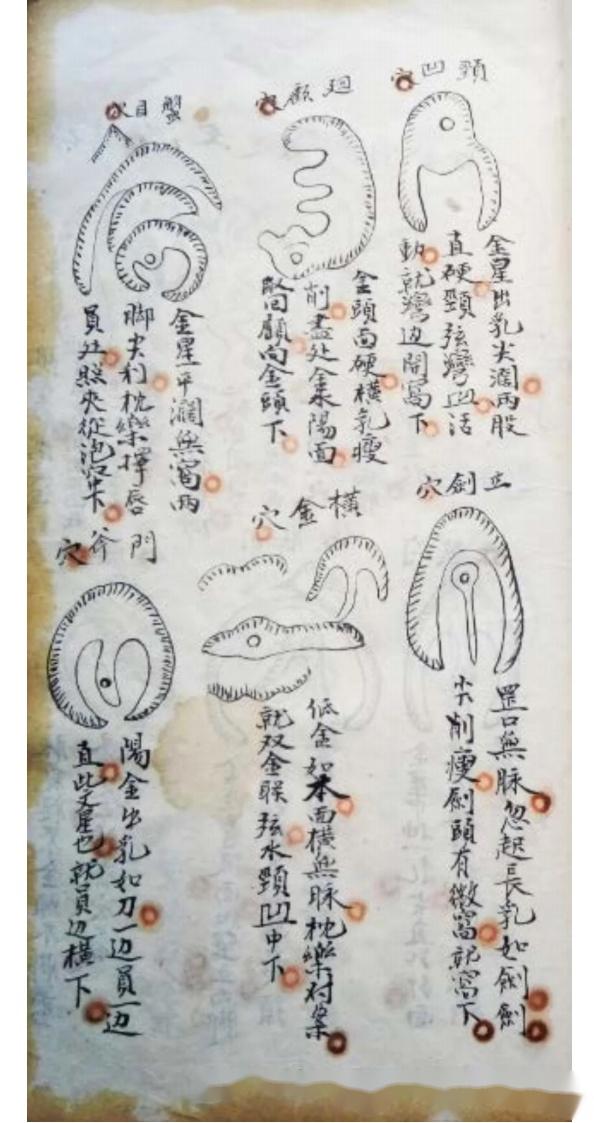 頸凹穴
金星出乳尖濶两股
直硬頸弦彎凹活
動就彎边開窩下
廻顧穴
金頭面硬横乳瘦
削盡处金来陽面
囬顧向金頭下
蟹目穴
金星一平濶無窩两
脚尖利枕樂揮唇
員处照夾從泡穴下
立劍穴
罡口無脉忽起長乳如劍劍
尖削瘦劍頭有微窩就窩下
横金穴
低金如木面横無脉枕樂对案
就双金联弦水頸凹中下
門斧穴
陽金出乳如刀一边員一边
直此文星也就員边横下